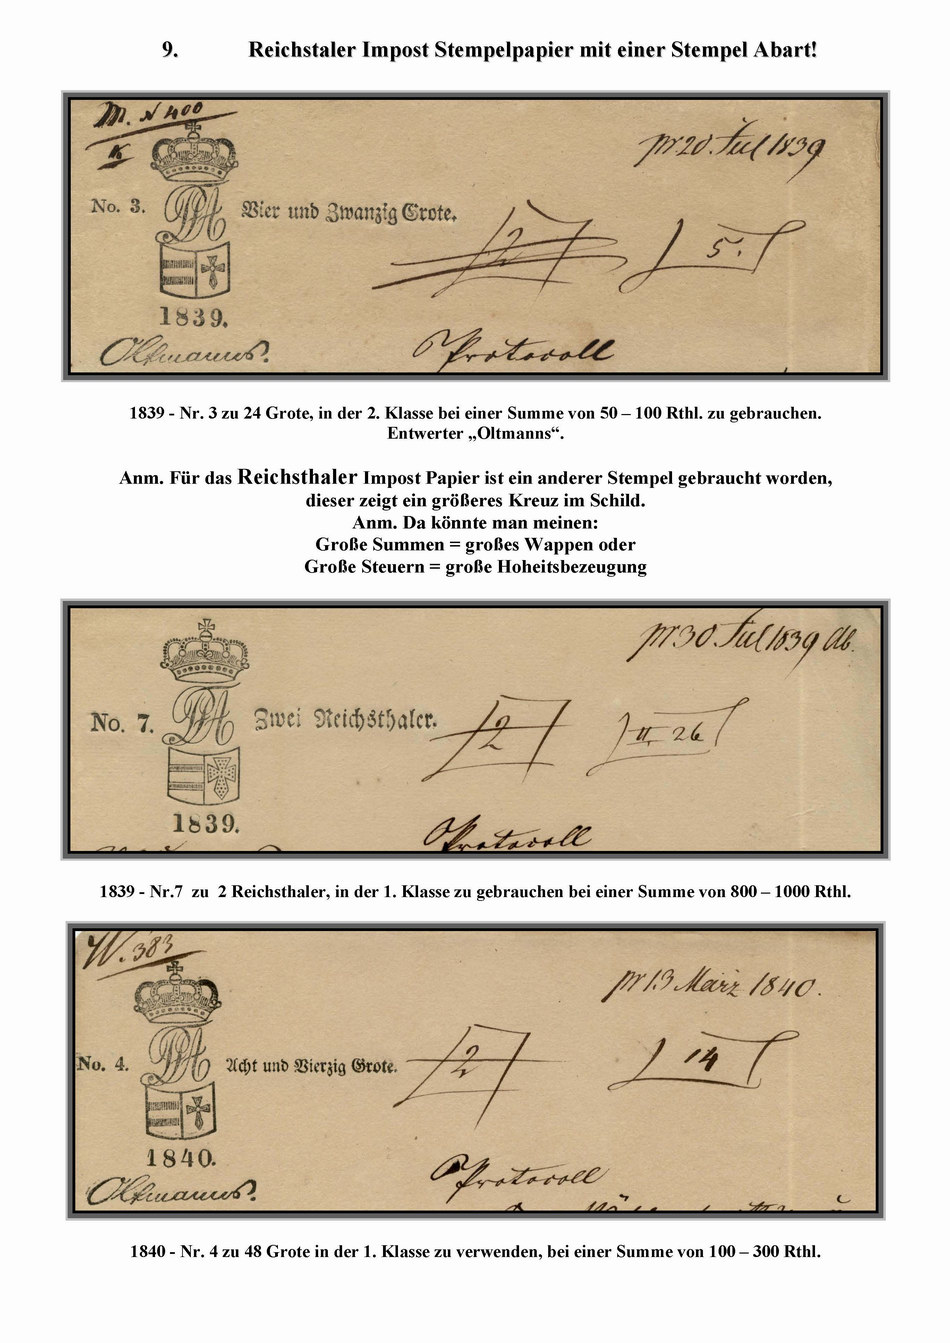 9. Reichstaler Impost Stempelpapier mit einer Stempel Abart!
M. N 400
K
pr 20. Jul 1839
No. 3. Vier und Zwanzig Grote.
2
5.
1839.
Oltmanns.
Protocoll
1839 - Nr. 3 zu 24 Grote, in der 2. Klasse bei einer Summe von 50 – 100 Rthl. zu gebrauchen.
Entwerter „Oltmanns“.
Anm. Für das Reichsthaler Impost Papier ist ein anderer Stempel gebraucht worden,
dieser zeigt ein größeres Kreuz im Schild.
Anm. Da könnte man meinen:
Große Summen = großes Wappen oder
Große Steuern = große Hoheitsbezeugung
pr 30 Jul 1839 Ab.
No. 7. Zwei Reichsthaler.
2
II. 26
1839.
Protocoll
1839 - Nr.7 zu 2 Reichsthaler, in der 1. Klasse zu gebrauchen bei einer Summe von 800 – 1000 Rthl.
N. 383
pr 13 März 1840.
No. 4. Acht und Vierzig Grote.
2
14
1840.
Oltmanns.
Protocoll
1840 - Nr. 4 zu 48 Grote in der 1. Klasse zu verwenden, bei einer Summe von 100 – 300 Rthl.